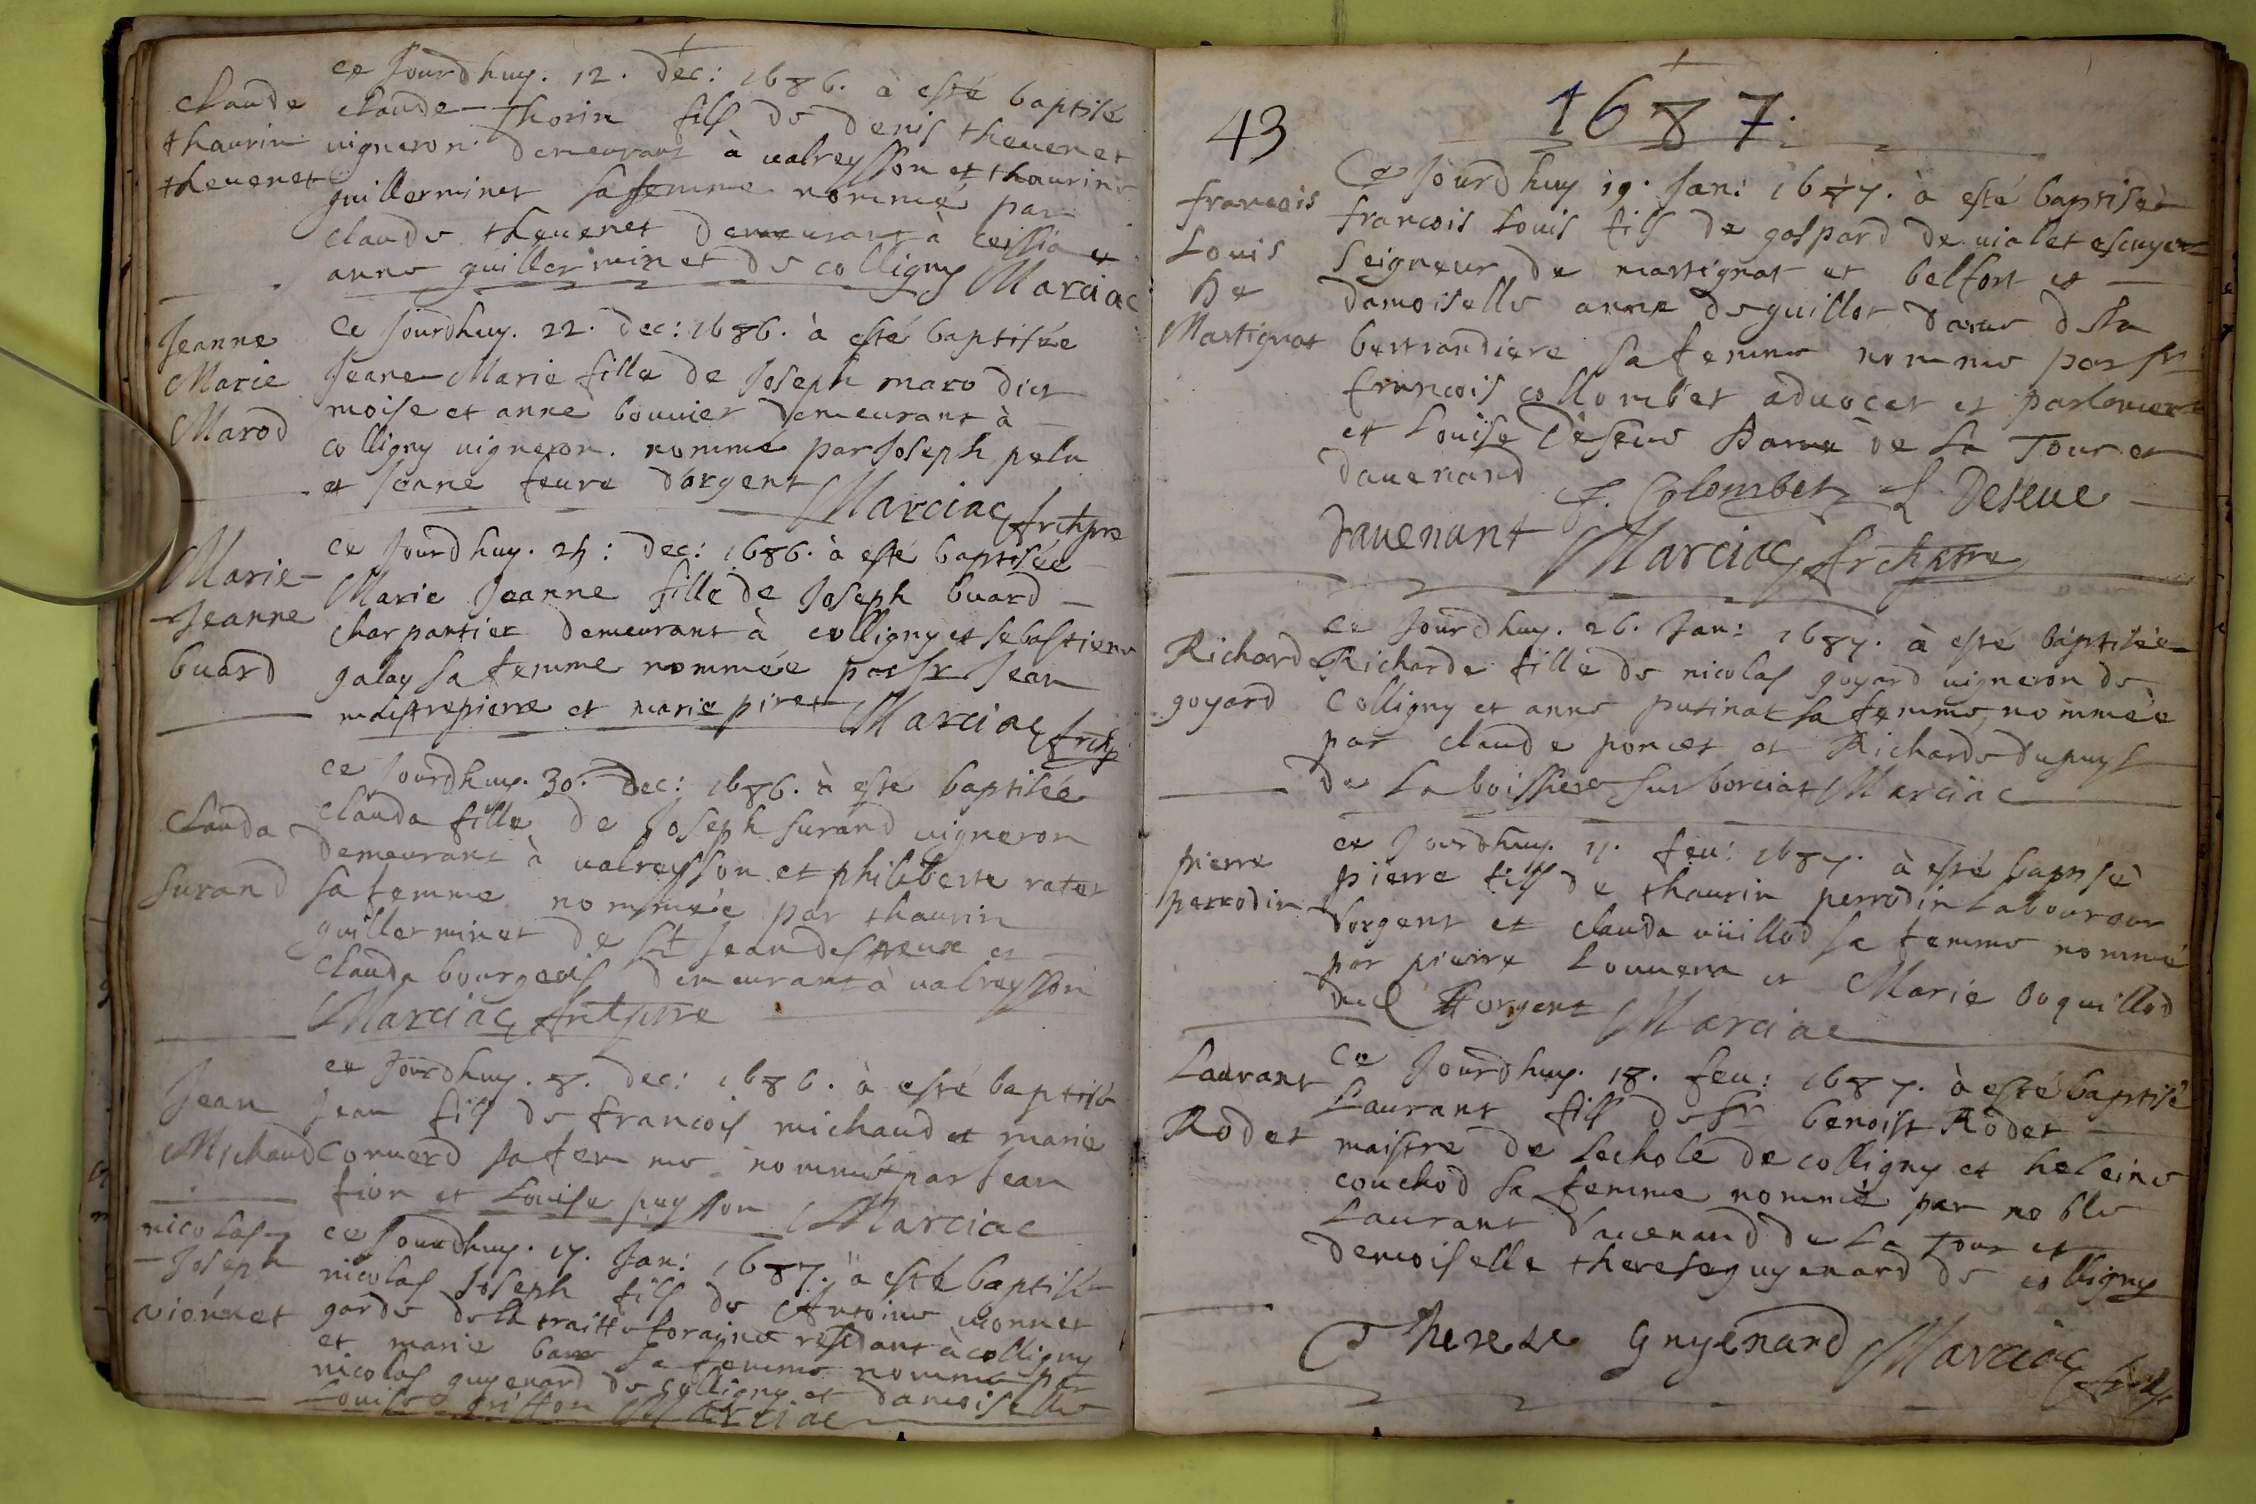 claude
thaurin
thevenet
ce Jourdhuy. 12. dec: 1686. à esté baptisé
claude Thorin fils de denis thevenet
vigneron demeurant à valreysson et thaurine
guillerminet sa femme nommé par
claude thevenet demeurant à cessia et
anne guillerminet de colligny Marciac
Jeanne
Marie
Marod
Ce jourdhuy. 22. dec: 1686. à esté baptisée
Jeane Marie fille de Joseph maro dict
moise et anne bouvier demeurant à
colligny vigneron. nommé par Joseph pelu
et Jeane feure dorgent Marciac Archpre
Marie
Jeanne
buard
ce Jourdhuy. 24: dec: 1686. à esté baptisée
Marie Jeanne fille de Joseph buard
charpantier demeurant à colligny et sebastiene
galay sa femme nommée par sr Jean
maistrepierre et marie piret Marciac Archp
Clauda
Surand
ce jourdhuy. 30. Dec: 1686. à esté baptisée
clauda fille de Joseph surand vigneron
demeurant à valreysson et philiberte ratet
sa femme nommée par thaurin
guillerminet de st Jean destreux et
clauda bourgeois demeurant à valreysson
Marciac Archpre
Jean
Michaud
ce Jourdhuy. 8. dec: 1686. à esté baptisé
Jean fils de francois michaud et marie
convert sa femme nommé par Jean
fion et Louise puysson Marciac
nicolas
Joseph
vionnet
ce Jourdhuy. 17. Jan: 1687. à esté baptisé
nicolas Joseph fils de Antoine vionnet
garde de la traitte foraine residant à colligny
et marie sa femme nommé par
nicolas guyenard de colligny et damoiselle
Louise griffon Marciac
1687.
43
francois
Louis
De
Martignat
Ce Jourdhuy 19. Jan: 1687. à esté baptisé
francois Louis fils de gaspard de vialet escuyer
seigneur de martignat et belfort et
damoiselle anne deguillot dame dela
bertrandiere sa femme nommé par sr
francois collombet advocat et parlement
et Louise Deseue Dame de La Tour et
davenand F. Colombet L Deseue
Davenant Marciac Archptre
Richarde
goyard
ce Jourdhuy. 26. Jan: 1687. à esté baptisée
Richarde fille de nicolas goyard vigneron de
Colligny et anne putinat sa femme, nommée
par claude poncet et Richarde dupuys
de La boissiere sur borciat Marciac
pierre
perrodin
ce Jourdhuy. 11. feu: 1687. à esté baptisé
pierre fils de thaurin perrodin Laboureur
dorgent et clauda vüillod sa femme nommé
par pierre Louvern et Marie Boquillod
dud dorgent Marciac
Laurant
Rodet
Ce Jourdhuy. 18. feu: 1687. à esté baptisé
Laurant fils de sr benoist Rodet
maistre de Lechole de colligny et heleine
couchod sa femme nommé par noble
Laurant davenand de La Tour et
demoiselle therese guyenard de colligny
Therese guyenard Marciac Archp